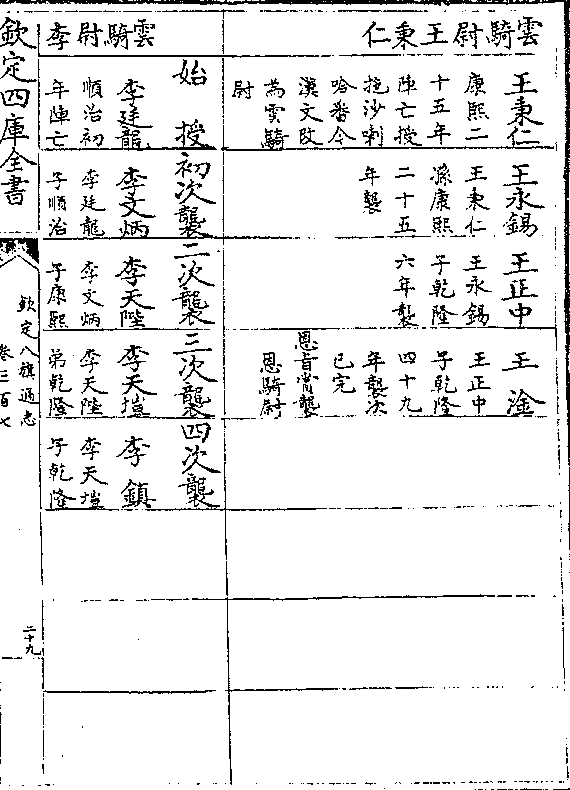 雲騎尉王秉仁
王秉仁
康熙二
十五年
陣亡授
拖沙喇
哈番今
漢文改
為雲騎
尉
王永錫
王秉仁
孫康熙
二十五
年襲
王正中
王永錫
子乾隆
六年襲
王淦
王正中
子乾隆
四十九
年襲次
已完
恩旨賞襲
恩騎尉
雲騎尉李
始授
李廷龍
順治初
年陣亡
初次襲
李文炳
李廷龍
子順治
二次襲
李天陛
李文炳
子康熙
三次襲
李天塏
李天陛
弟乾隆
四次襲
李鎮
李天塏
子乾隆
欽定四庫全書
欽定八旗通志
卷三百七
二十九